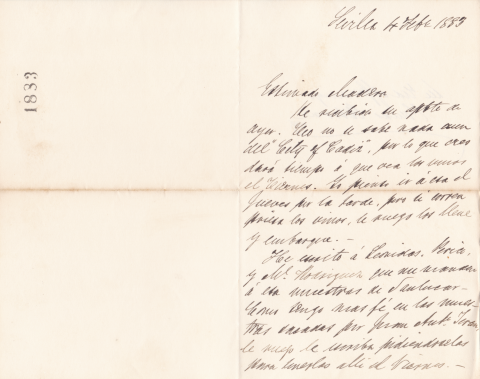 1883
Sevilla 4 Febr 1883
Estimado
He recibido su apble de
ayer. no se sabe nada aun
del "City of Cadiz", por lo que creo
dará tiempo á que vea los vinos
el Viernes. Yo pienso ir á esa el
Jueves por la tarde, pero si corren
prisa los vinos, le ruego los llene
y embarque. —
He escrito á Leonidas,
y Mr. Rodriguez que me manden
á esa muestras de Sanlucar.
Como tengo mas fé en las mues-
tras sacadas por Juan Anto.
le ruego le escriba pidiendoselas
para tenerlas alli el Viernes. —